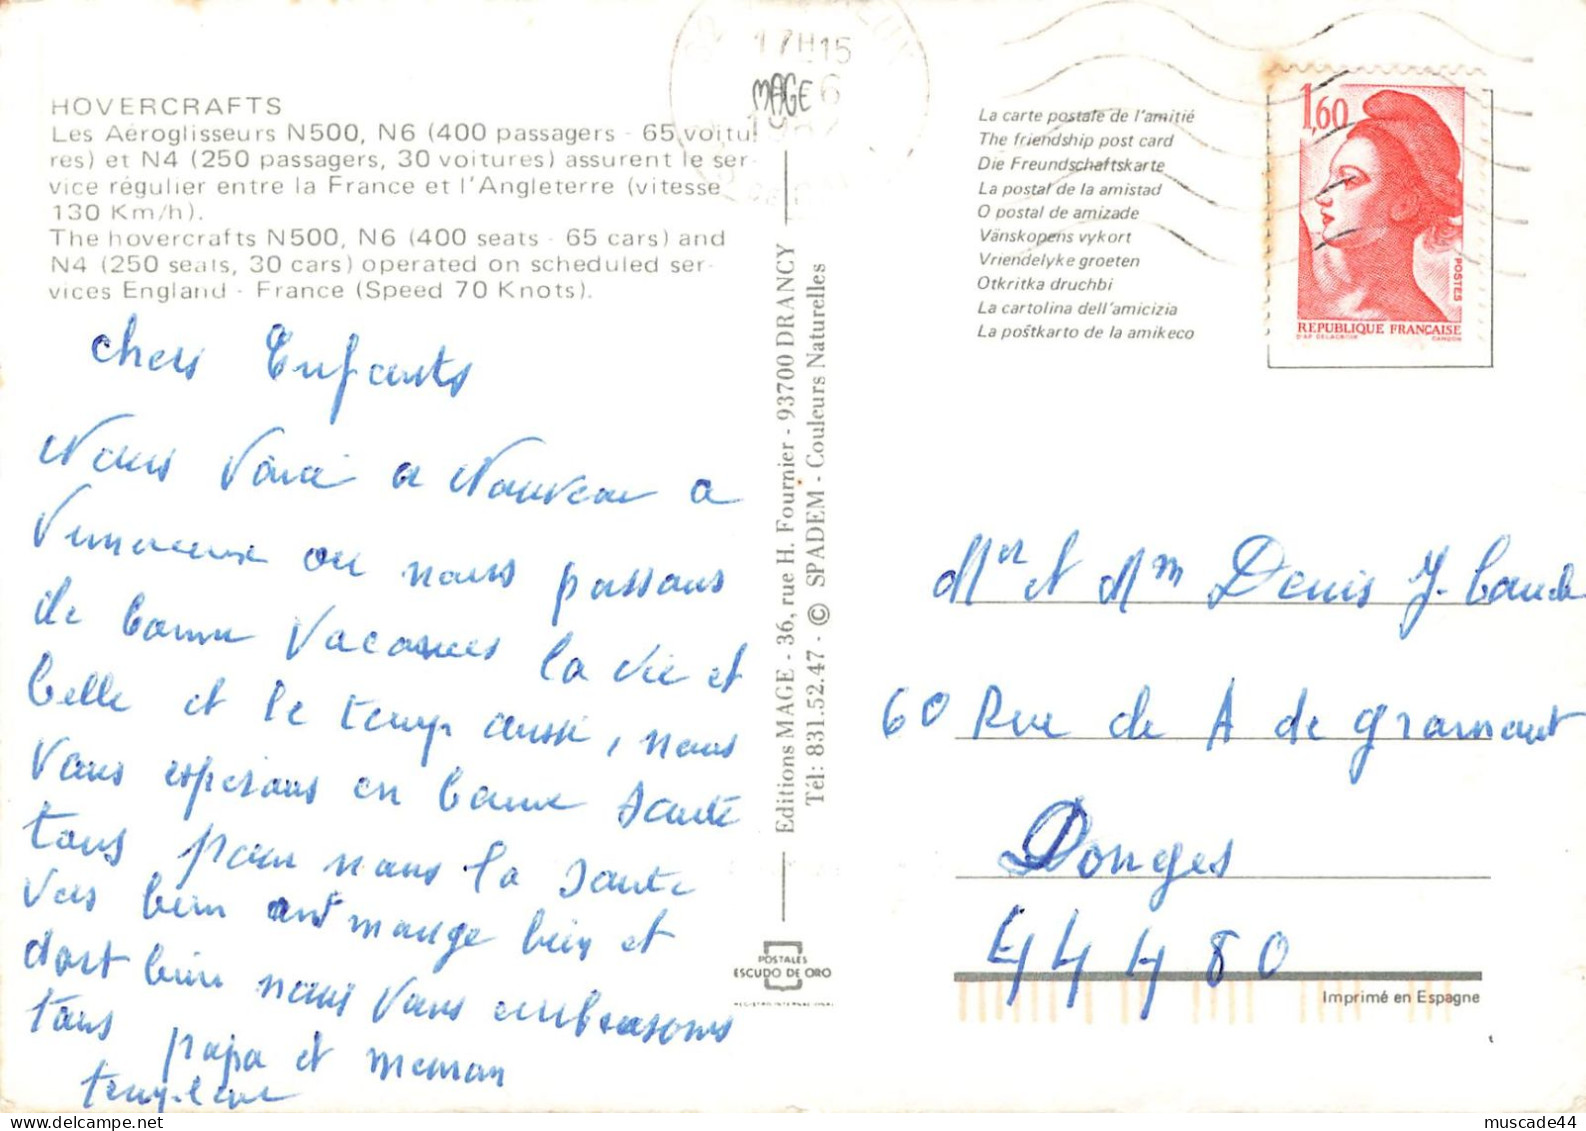 HOVERCRAFTS
Les Aéroglisseurs N500, N6 (400 passagers - 65 voitu
res) et N4 (250 passagers, 30 voitures) assurent le ser-
vice régulier entre la France et l'Angleterre (vitesse
130 Km/h).
The hovercrafts N500, N6 (400 seats - 65 cars) and
N4 (250 seats, 30 cars) operated on scheduled ser-
vices England - France (Speed 70 Knots).
chers Enfants
Nous Voici a Nouveau a
Vimereux ou nous passons
de bonne Vacances la vie et
belle et le temps aussi, nous
Vous esperons en bonne Sante
tous pour nous la Sante
Vas bien ont mange bien et
dort bien nous Vous embrassons
tous papa et meman
17H15
MAGE
Editions MAGE - 36, rue H. Fournier - 93700 DRANCY
Tél: 831.52.47 - © SPADEM - Couleurs Naturelles
POSTALES
ESCUDO DE ORO
REGISTRO INTERNACIONAL
La carte postale de l'amitié
The friendship post card
Die Freundschaftskarte
La postal de la amistad
O postal de amizade
Vänskopens vykort
Vriendelyke groeten
Otkritka druchbi
La cartolina dell'amicizia
La poŝtkarto de la amikeco
1,60
POSTES
REPUBLIQUE FRANÇAISE
D'AP. DELACROIX GANDON
Mer et Mm Denis J.
60 Rue de A de gramont
Donges
44480
Imprimé en Espagne
muscade44